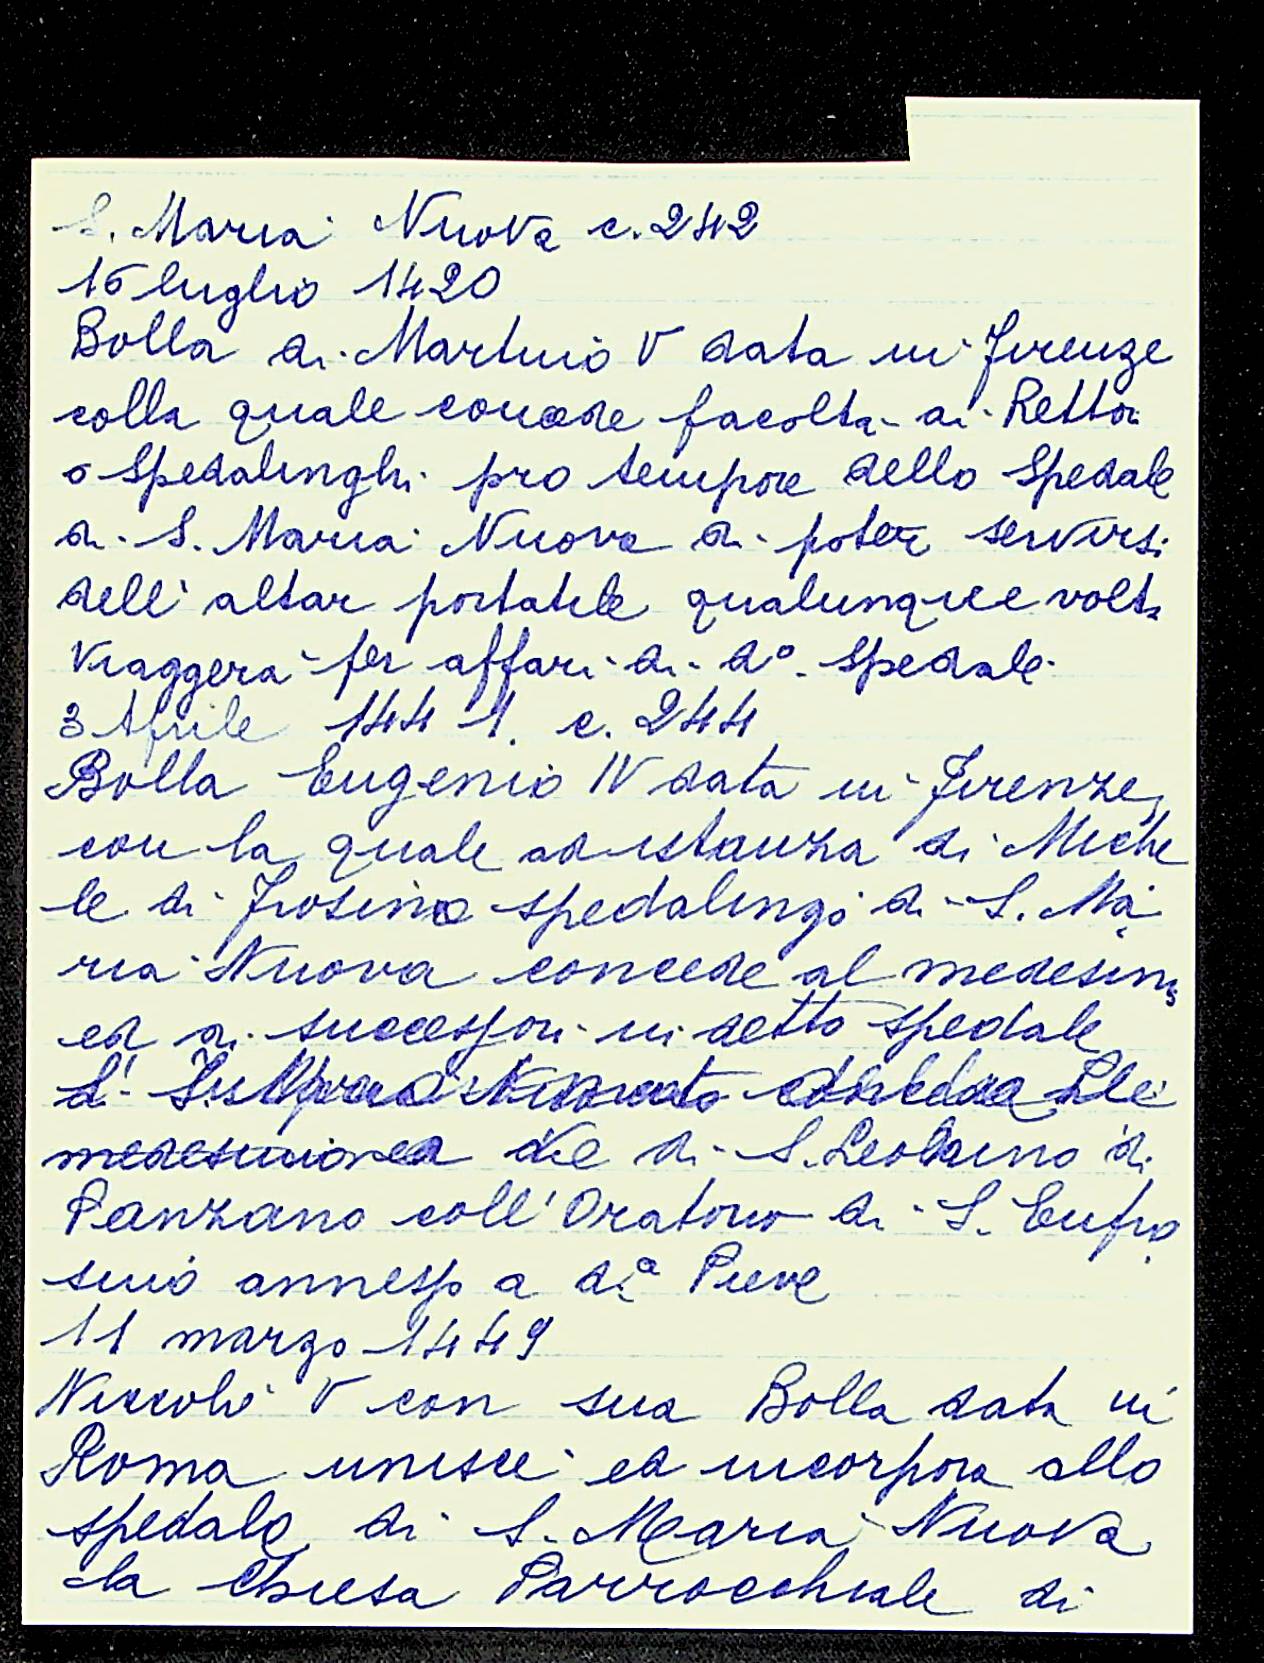 S. Maria Nuova c. 242
16 luglio 1420
Bolla di Martino V data in Firenze
colla quale concede facoltà ai Rettori
o Spedalinghi pro tempore dello Spedale
di S. Maria Nuova di poter servirsi
dell'altar portatile qualunque volta
viaggerà per affari di d.º Spedale
3 Aprile 1441. c. 244
Bolla Eugenio IV data in Firenze,
con la quale ad istanza di Miche
le di Frosino spedalingo di S. Ma
ria Nuova concede al medesimo
ed ai successori in detto spedale
medesimo di S. Leolino di
Panzano coll'Oratorio di S. Eufro
sino annesso a d.ª Pieve
11 marzo 1449
Niccolò V con sua Bolla data in
Roma unisce ed incorpora allo
spedale di S. Maria Nuova
la Chiesa Parrocchiale di